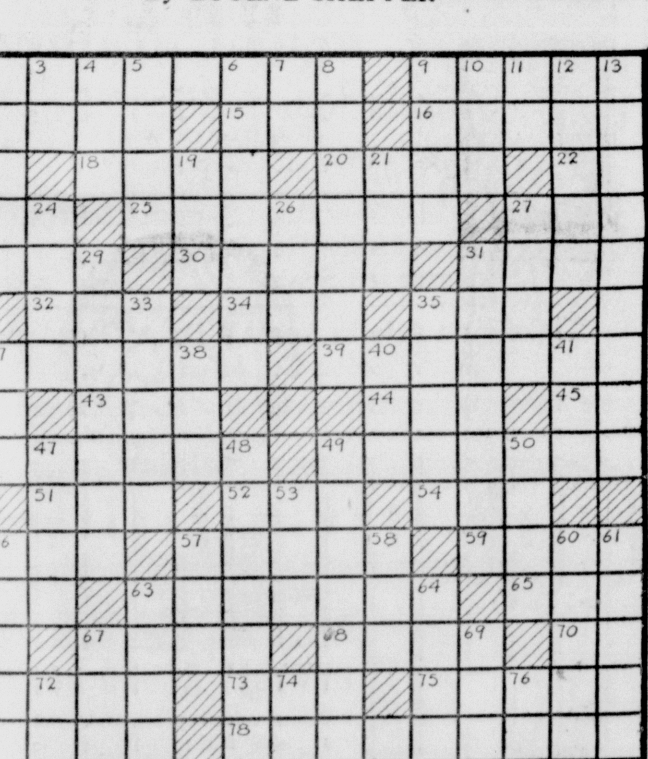 3 4 5 6 7 8 9 10 11 12 13
15 16
18 19 20 21 22
24 25 26 27
29 30 31
32 33 34 35
38 39 40 41
43 44 45
47 48 49 50
51 52 53 54
57 58 59 60 61
63 64 65
67 68 69 70
72 73 74 75 76
78